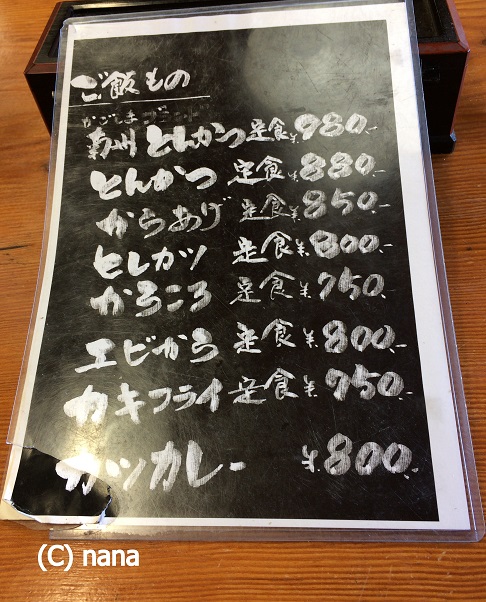 ご飯もの
かごしまブランド
南州とんかつ定食¥980.-
とんかつ 定食¥880.-
からあげ定食¥850.-
ヒレカツ 定食¥800.-
かろころ 定食¥750.-
エビから 定食¥800.-
カキフライ定食¥750.-
カツカレー ¥800.-
(C) nana